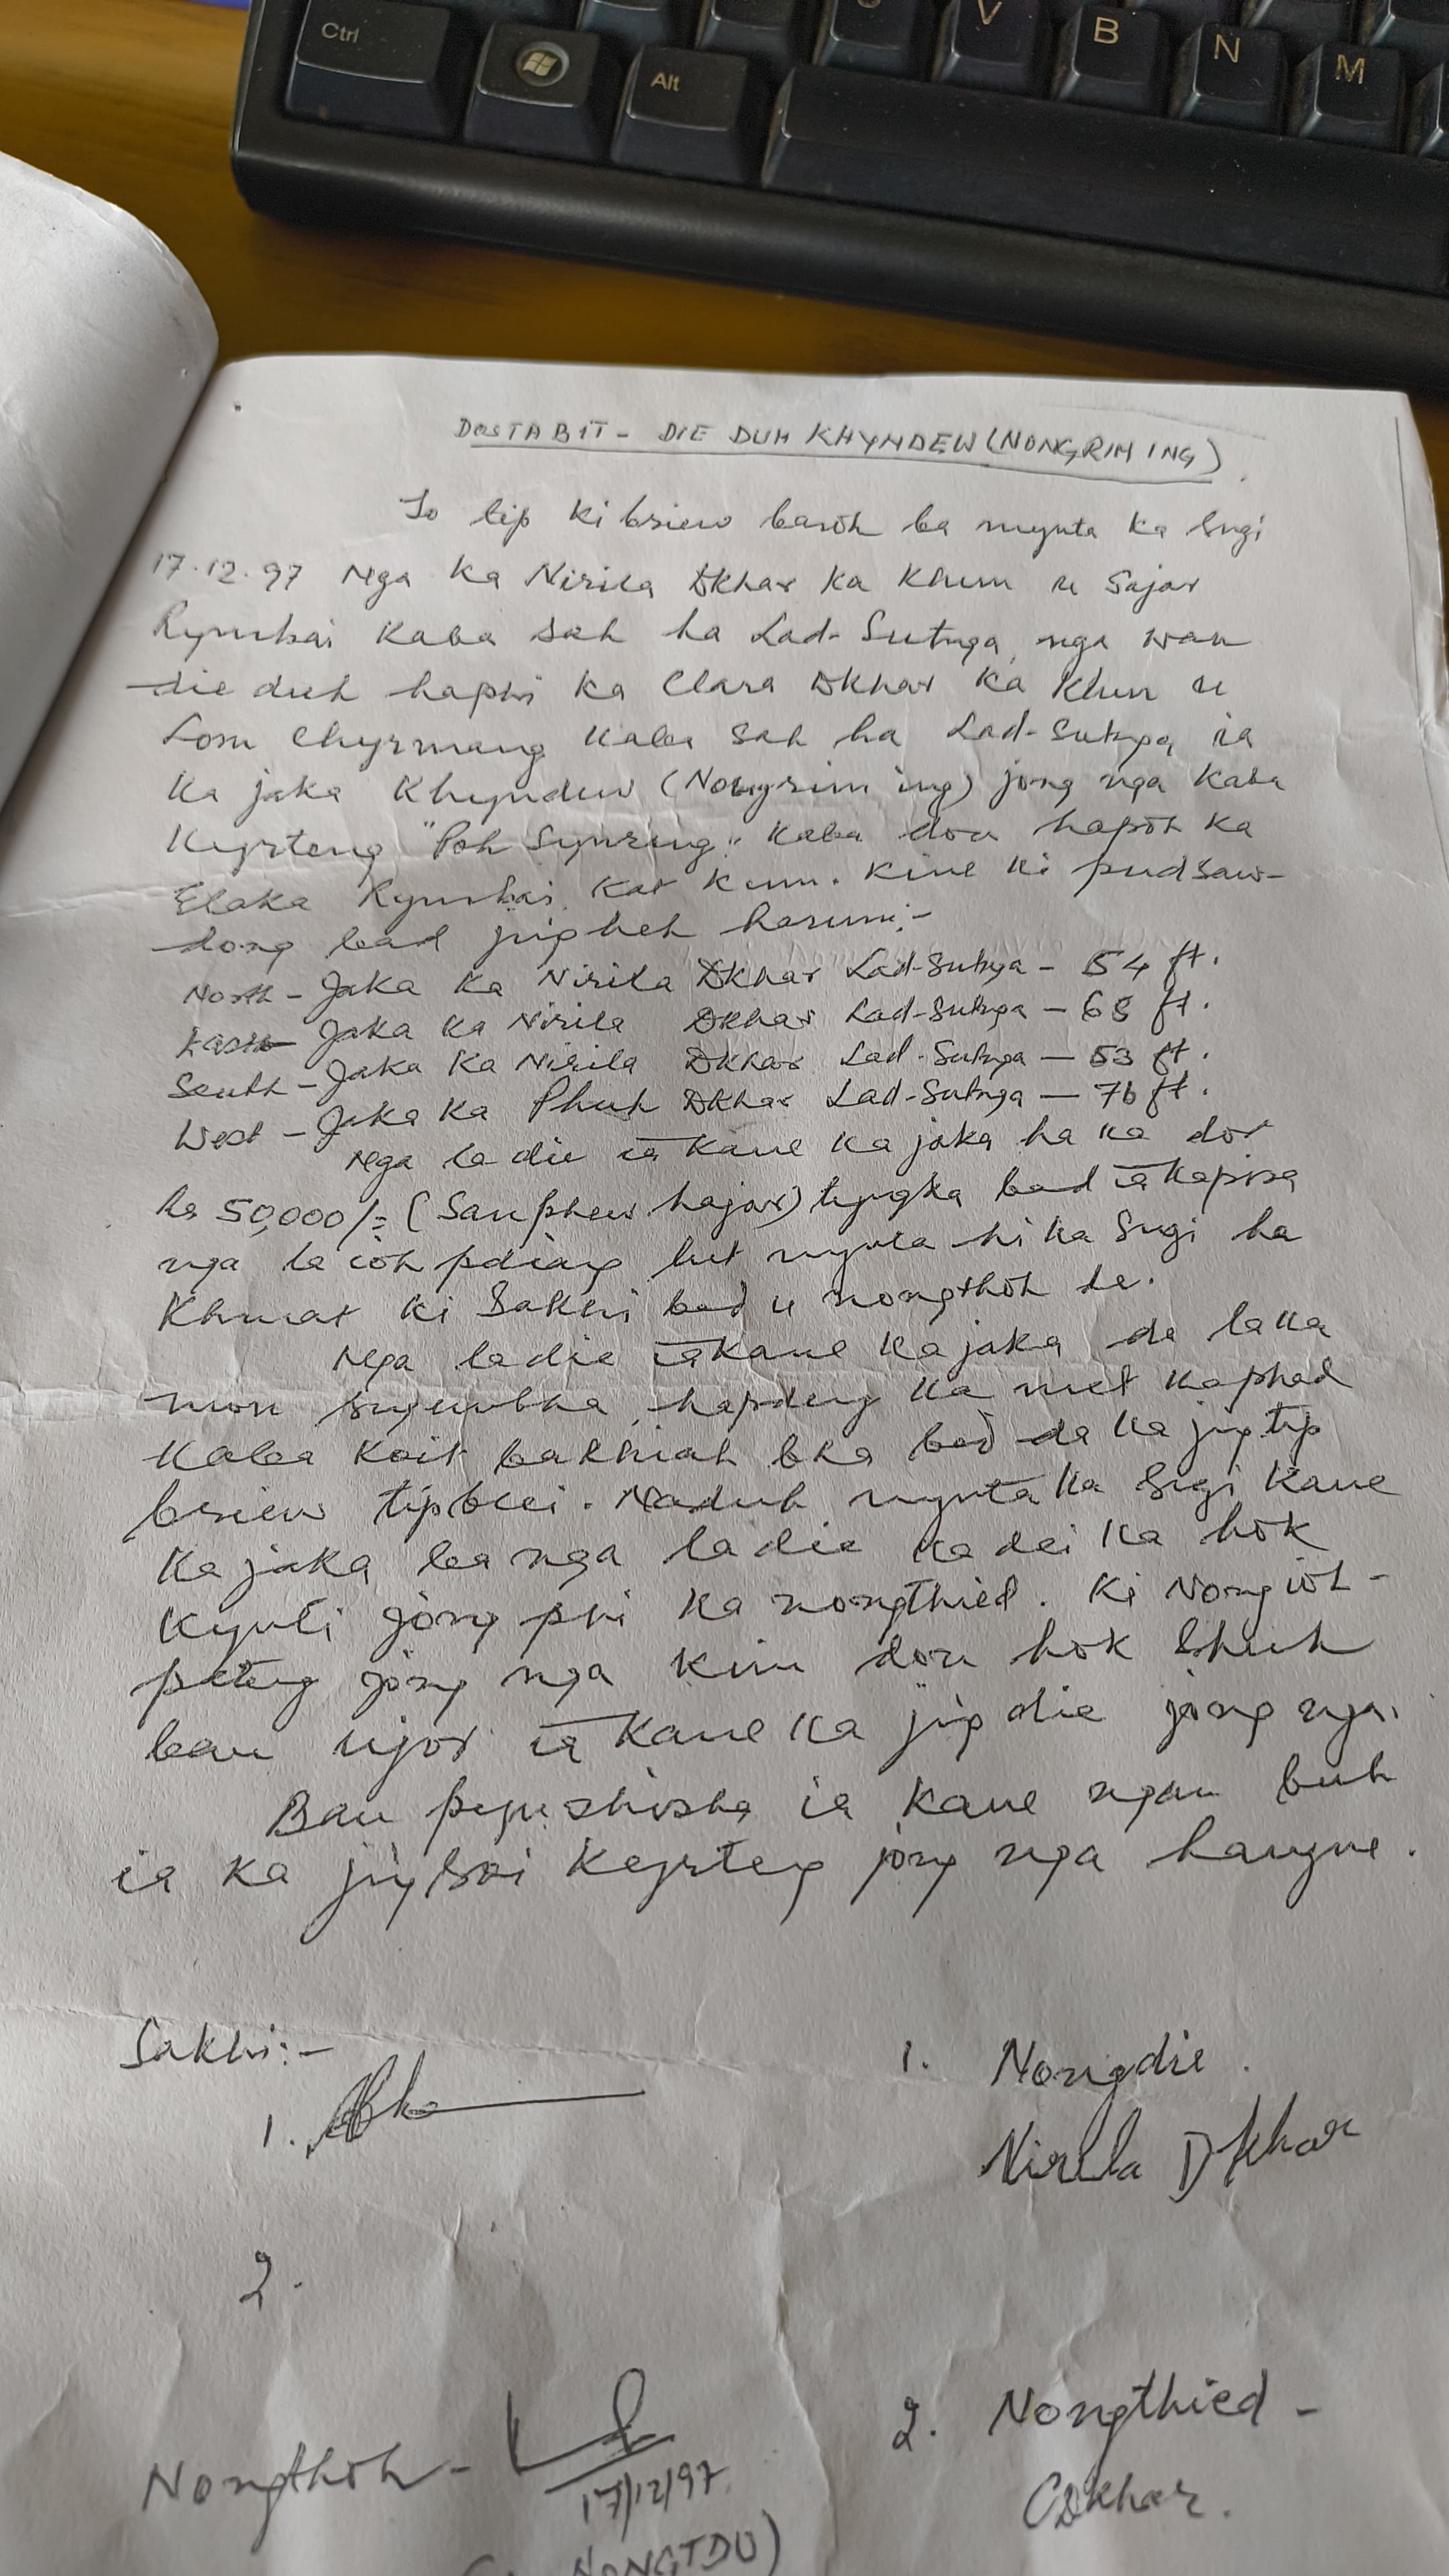 Ctrl
Alt
V B N M
DOSTABIT - DIE DUH KHYNDEW (NONGRIM ING)
To tip ki briew baroh ba mynta ka sngi
17.12.97 Nga ka Nirila Dkhar ka khun u Sajar
Rymbai kaba sah ha Lad-Sutnga, nga wan
die duh haphi ka Clara Dkhar ka khun u
Lom Chyrmang kaba sah ha Lad-Sutnga, ia
ka jaka Khyndew (Nongrim ing) jong nga kaba
kyrteng "Poh Synreng" kaba don hapoh ka
Elaka Rymbai. kat kum. kine ki pudsaw-
dong bad jingheh harum:-
North - Jaka ka Nirila Dkhar Lad-Sutnga - 54 ft.
East - Jaka ka Nirila Dkhar Lad-Sutnga - 68 ft.
South - Jaka ka Nirila Dkhar Lad-Sutnga - 53 ft.
West - Jaka ka Phuh Dkhar Lad-Sutnga - 76 ft.
Nga la die ia kane ka jaka ha ka dor
50,000/= (San phew hajar) tyngka bad ia kapisa
nga la ioh pdiang lut mynta hi ka sngi ha
khmat ki Sakhi bad u nongthoh de.
Nga la die ia kane ka jaka da la ka
mon sngewbha, hapdeng ka met kaphad
kaba koit bakhiah bha bad da ka jingtip
briew tipblei. Naduh mynta ka sngi kane
ka jaka ba nga la die ka dei ka hok
kynti jong phi ka nongthied. Ki Nongioh-
pateng jong nga kim don hok shuh
ban ujor ia kane ka jingdie jong nga.
Ban pynshisha ia kane ngan buh
ia ka jingsoi kyrteng jong nga hangne.
Sakhi:-
1.
1. Nongdie.
Nirila Dkhar
2.
2. Nongthied -
CDkhar.
Nongthoh -
17/12/97
NONGTDU)